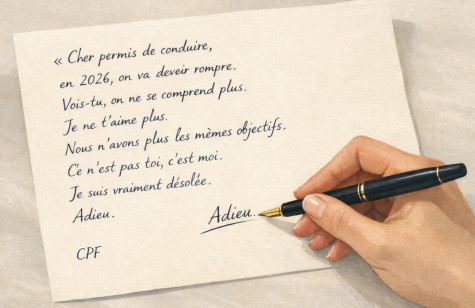 « Cher permis de conduire,
en 2026, on va deveir rompre.
Vois-tu, on ne se comprend plus.
Je ne t'aime plus.
Nous n'avons plus les mèmes objectifs.
Ce n'est pas toi, c'est moi.
Je suis vraiment désolée.
Adieu.
Adieu.
CPF